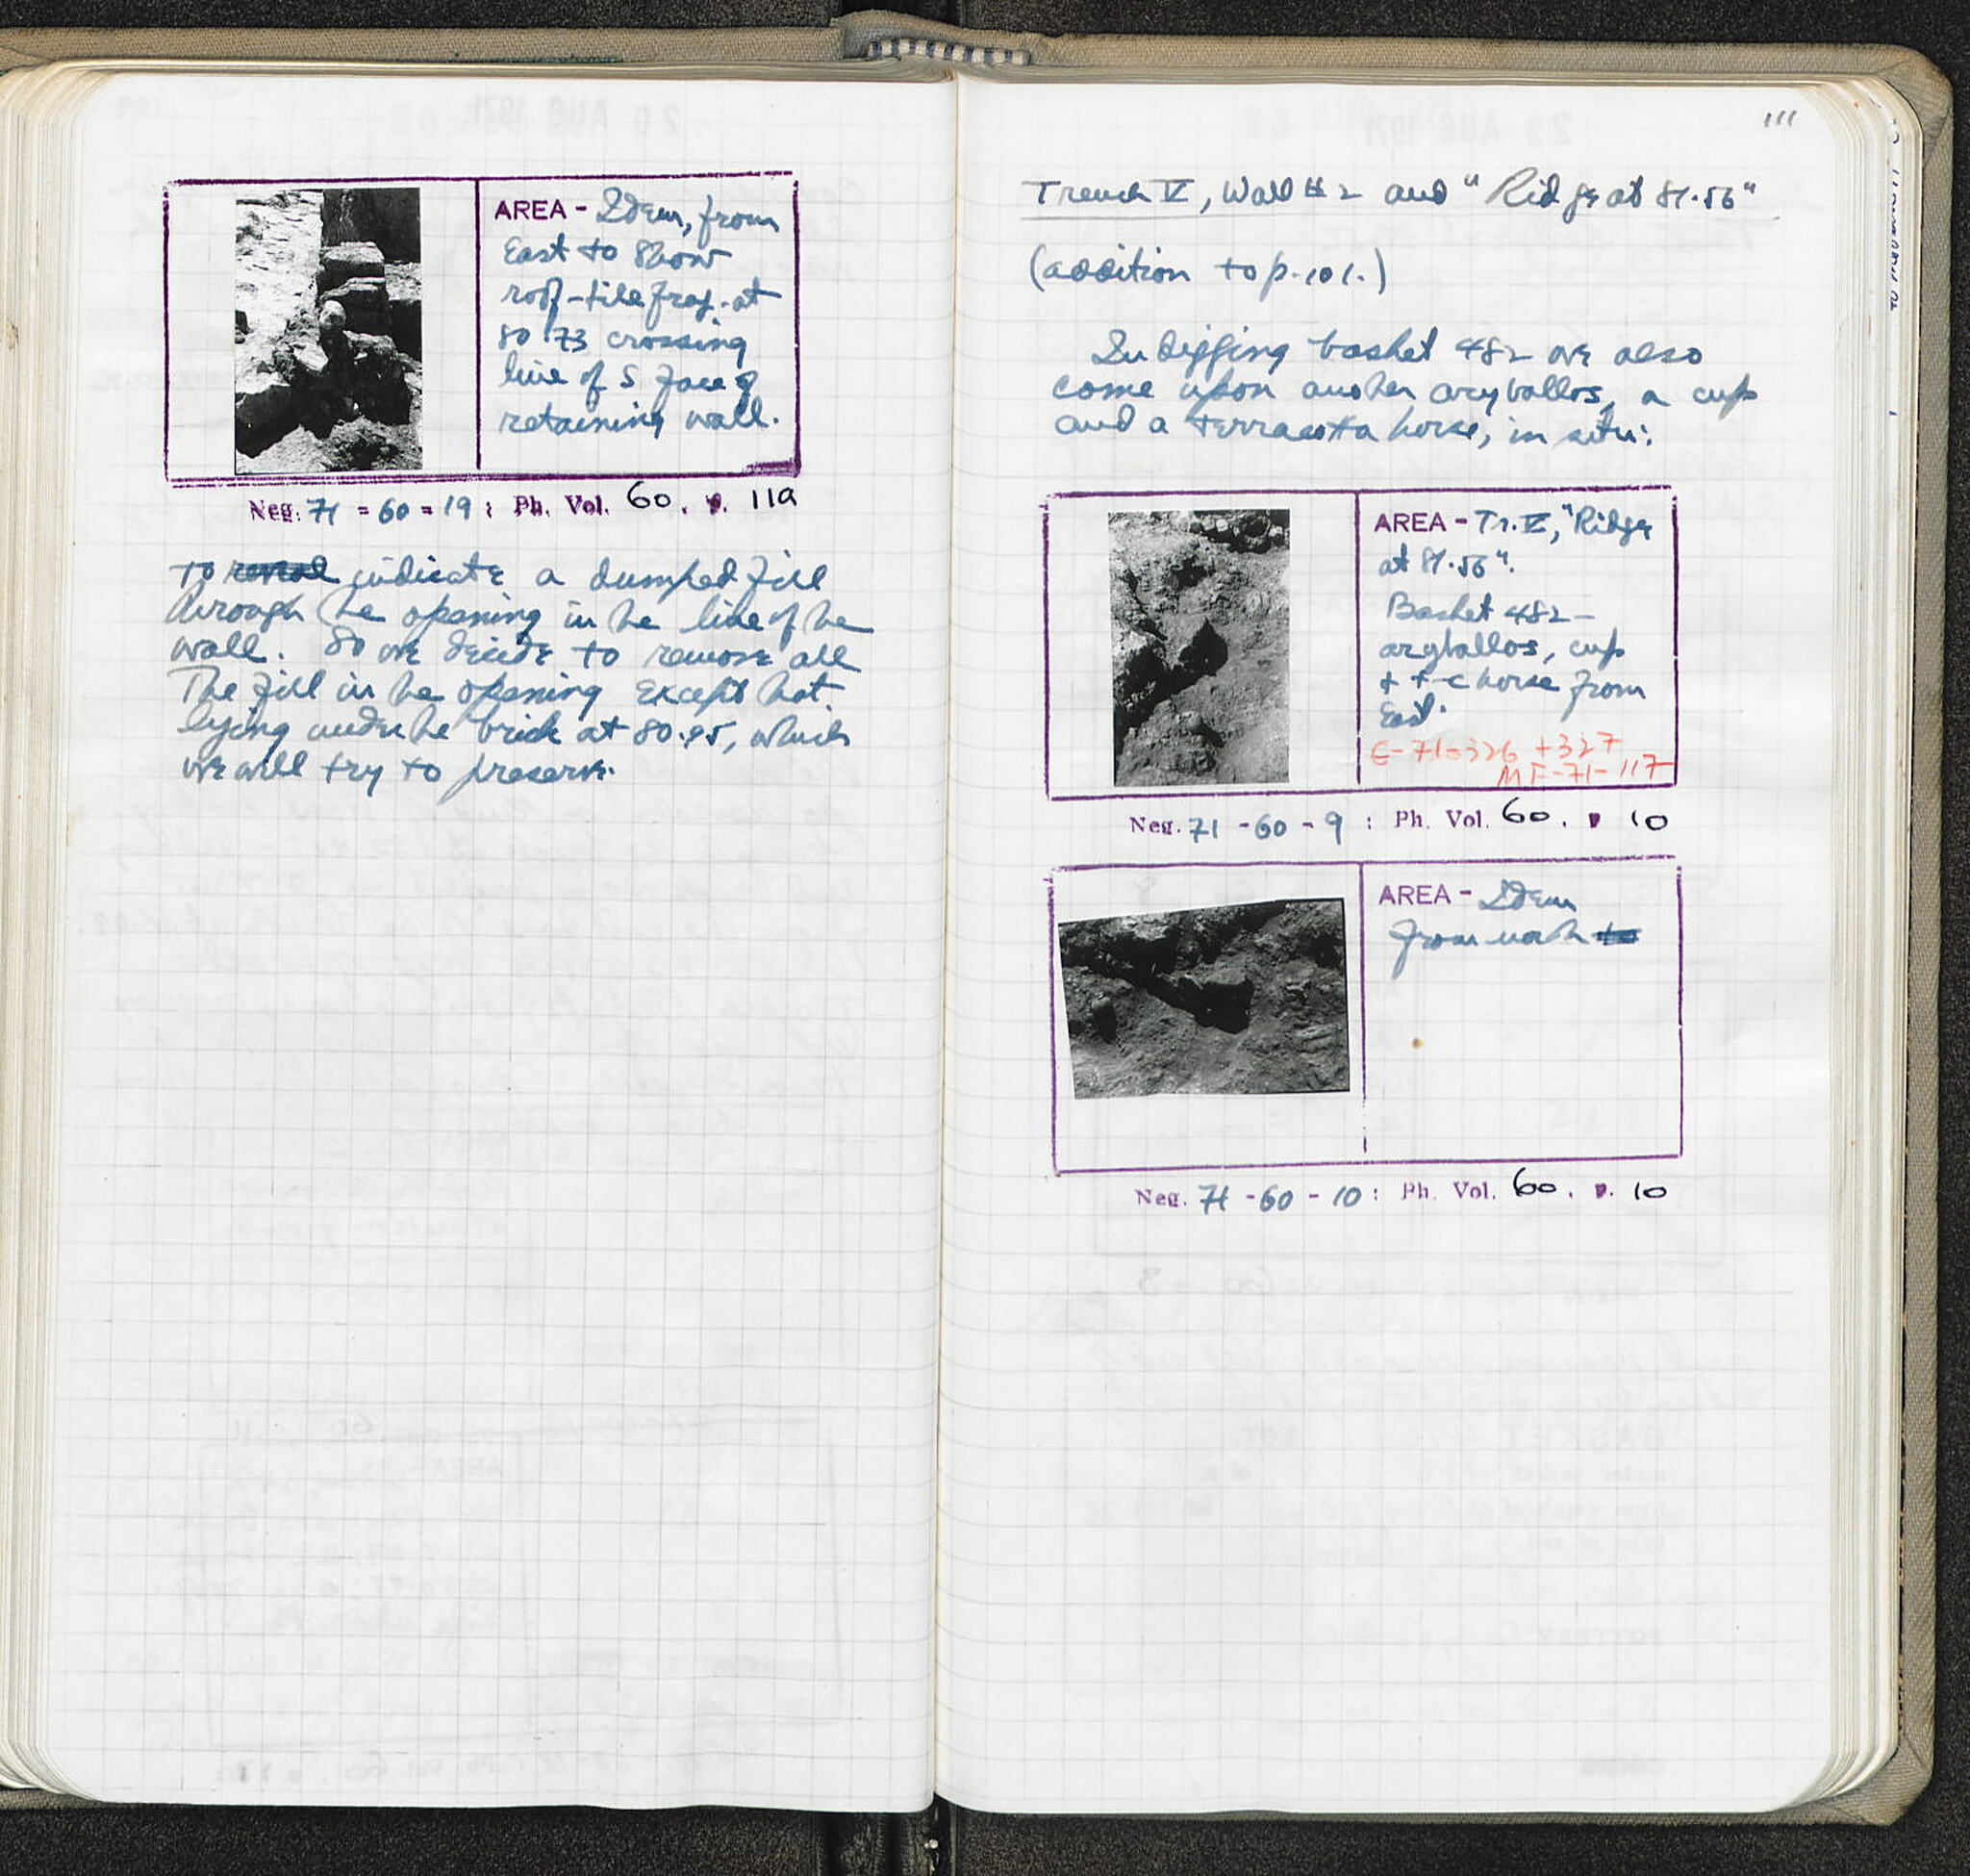 AREA - Idem, from
East to show
roof-tile frag. at
80.73 crossing
line of S face of
retaining wall.
Neg. 71 - 60 - 19 : Ph. Vol. 60, p. 11a
to indicate a dumped fill
through the opening in the line of the
wall. So we decide to remove all
the fill in the opening except that
lying under the brick at 80.95, which
we will try to preserve.
111
Trench V, Wall #2 and "Ridge at 81.56"
(addition to p. 101.)
In digging basket 482 we also
come upon another aryballos, a cup
and a terracotta horse, in situ:
AREA - Tr. V, "Ridge
at 81.56".
Basket 482 -
aryballos, cup
+ t-c horse from
East.
C-71-326 +327
MF-71-117
Neg. 71 - 60 - 9 : Ph. Vol. 60, p 10
AREA - Idem
from north
Neg. 71 - 60 - 10 : Ph. Vol. 60, p. 10